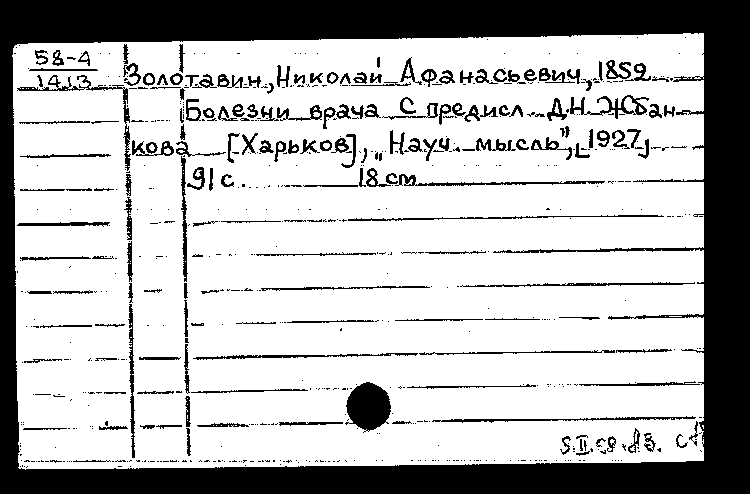 58-4
1413
Золотавин, Николай Афанасьевич, 1859
Болезни врача С предисл. Д.Н. Жбан
кова [Харьков], „Науч. мысль", [1927]
91 с. 18 cm